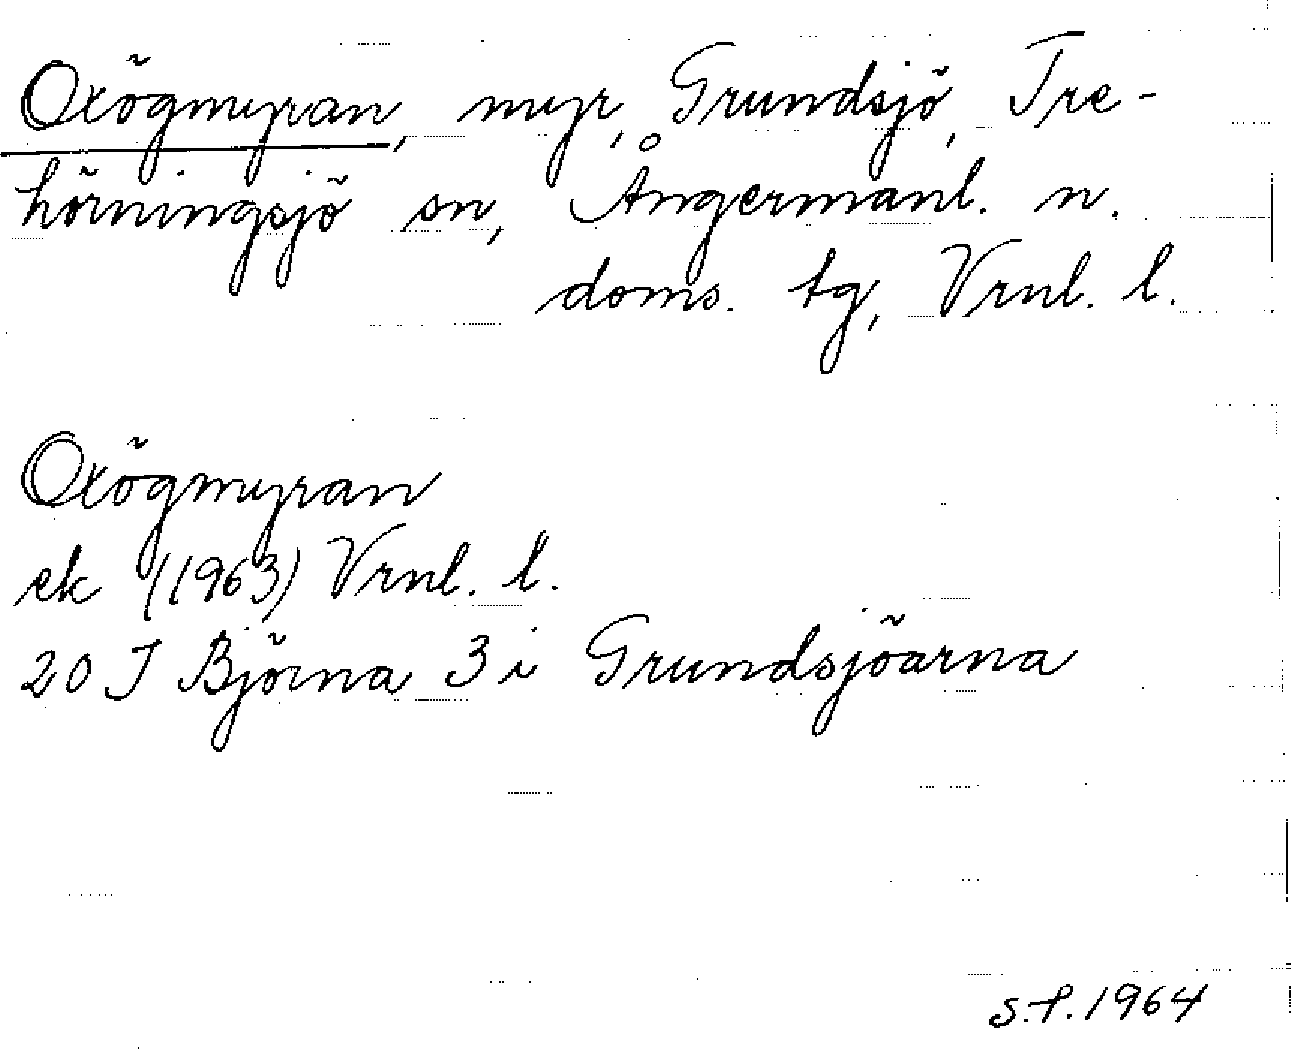 Oxögmyran, myr, Grundsjö, Tre-
hörningsjö sn, Ångermanl. n.
doms. tg, Vrnl. l.
Oxögmyran
ek (1963) Vrnl. l.
20 J Björna 3 i Grundsjöarna
S.P. 1964